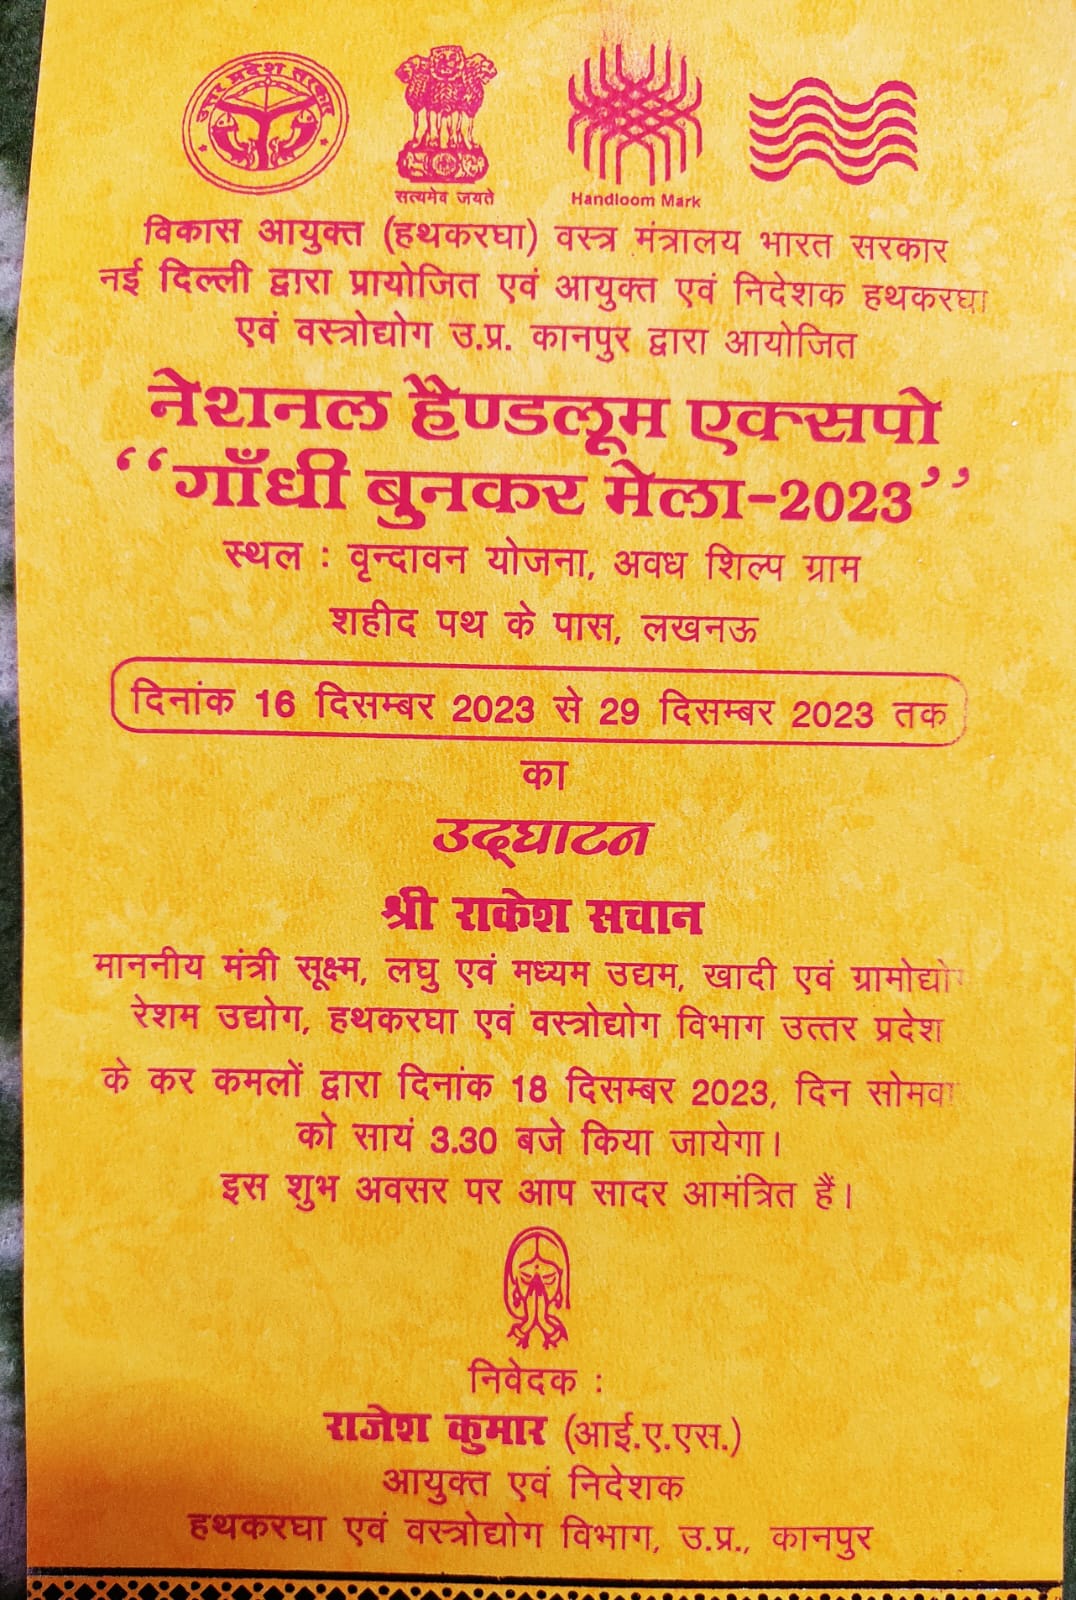 उत्तर प्रदेश सरकार
सत्यमेव जयते
Handloom Mark
विकास आयुक्त (हथकरघा) वस्त्र मंत्रालय भारत सरकार
नई दिल्ली द्वारा प्रायोजित एवं आयुक्त एवं निदेशक हथकरघा
एवं वस्त्रोद्योग उ.प्र. कानपुर द्वारा आयोजित
नेशनल हैण्डलूम एक्सपो
‘‘गाँधी बुनकर मेला-2023’’
स्थल : वृन्दावन योजना, अवध शिल्प ग्राम
शहीद पथ के पास, लखनऊ
दिनांक 16 दिसम्बर 2023 से 29 दिसम्बर 2023 तक
का
उद्घाटन
श्री राकेश सचान
माननीय मंत्री सूक्ष्म, लघु एवं मध्यम उद्यम, खादी एवं ग्रामोद्योग
रेशम उद्योग, हथकरघा एवं वस्त्रोद्योग विभाग उत्तर प्रदेश
के कर कमलों द्वारा दिनांक 18 दिसम्बर 2023, दिन सोमवा
को सायं 3.30 बजे किया जायेगा।
इस शुभ अवसर पर आप सादर आमंत्रित हैं।
निवेदक :
राजेश कुमार (आई.ए.एस.)
आयुक्त एवं निदेशक
हथकरघा एवं वस्त्रोद्योग विभाग, उ.प्र., कानपुर